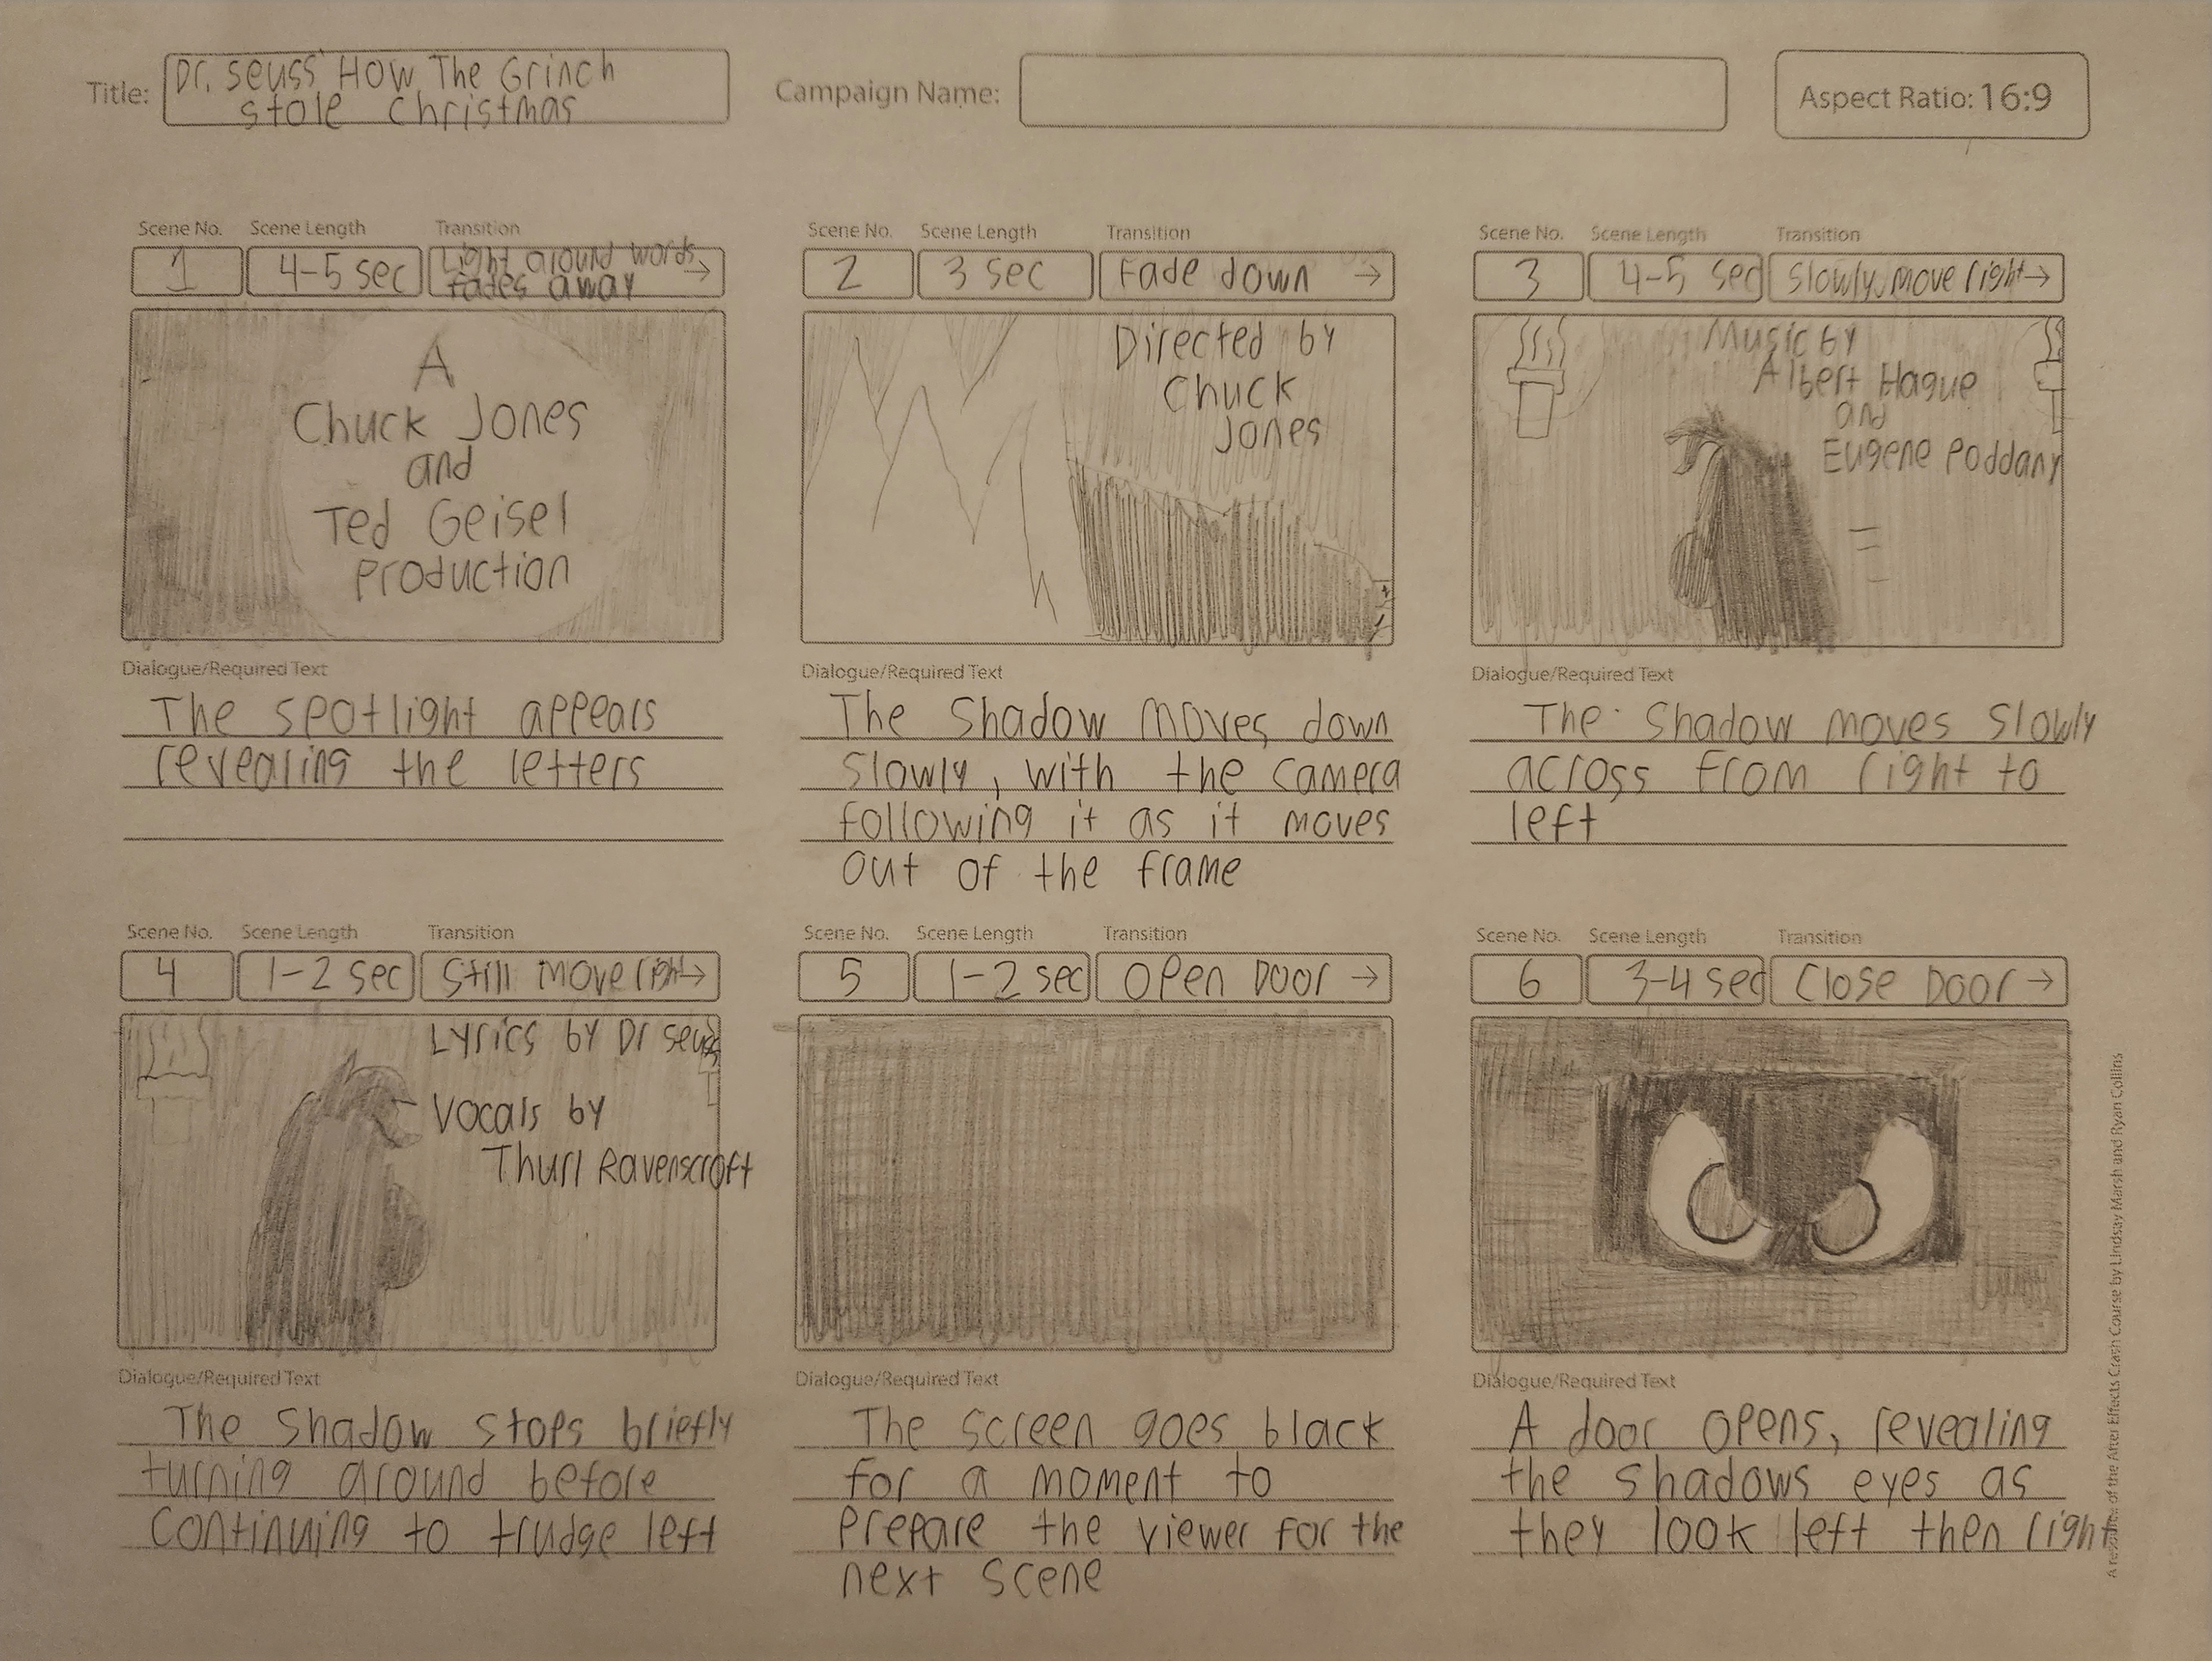 Title:
Dr. Seuss' How The Grinch
stole Christmas
Campaign Name:
Aspect Ratio: 16:9
Scene No. Scene Length Transition
1 4-5 sec Light around words
fades away →
A
Chuck Jones
and
Ted Geisel
production
Dialogue/Required Text
The spotlight appears
revealing the letters
Scene No. Scene Length Transition
2 3 sec Fade down →
Directed by
Chuck
Jones
Dialogue/Required Text
The Shadow moves down
slowly, with the camera
following it as it moves
out of the frame
Scene No. Scene Length Transition
3 4-5 sec slowly move right →
Music by
Albert Hague
and
Eugene Poddany
Dialogue/Required Text
The Shadow moves slowly
across from right to
left
Scene No. Scene Length Transition
4 1-2 sec Still move right →
Lyrics by Dr Seuss
Vocals by
Thurl Ravenscroft
Dialogue/Required Text
The Shadow stops briefly
turning around before
continuing to trudge left
Scene No. Scene Length Transition
5 1-2 sec Open Door →
Dialogue/Required Text
The screen goes black
for a moment to
prepare the viewer for the
next scene
Scene No. Scene Length Transition
6 3-4 sec Close Door →
Dialogue/Required Text
A door opens, revealing
the shadows eyes as
they look left then right
A resource of the After Effects Crash Course by Lindsay Marsh and Ryan Collins